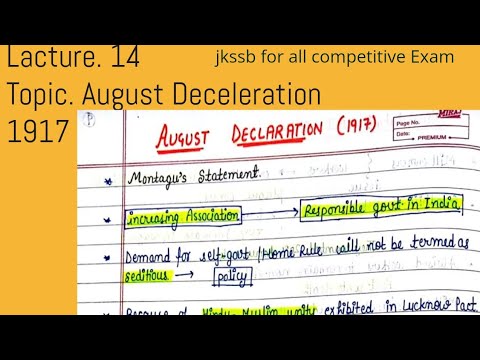 Lacture. 14
jkssb for all competitive Exam
Topic. August Deceleration
1917
MIRAJ
Page No.
Date: PREMIUM
AUGUST DECLARATION (1917)
* Montagu's Statement.
* increasing Association → Responsible govt in India
* Demand for self-govt / Home Rule will not be termed as
seditious → policy
* Because of Hindu-Muslim unity exhibited in Lucknow Pact